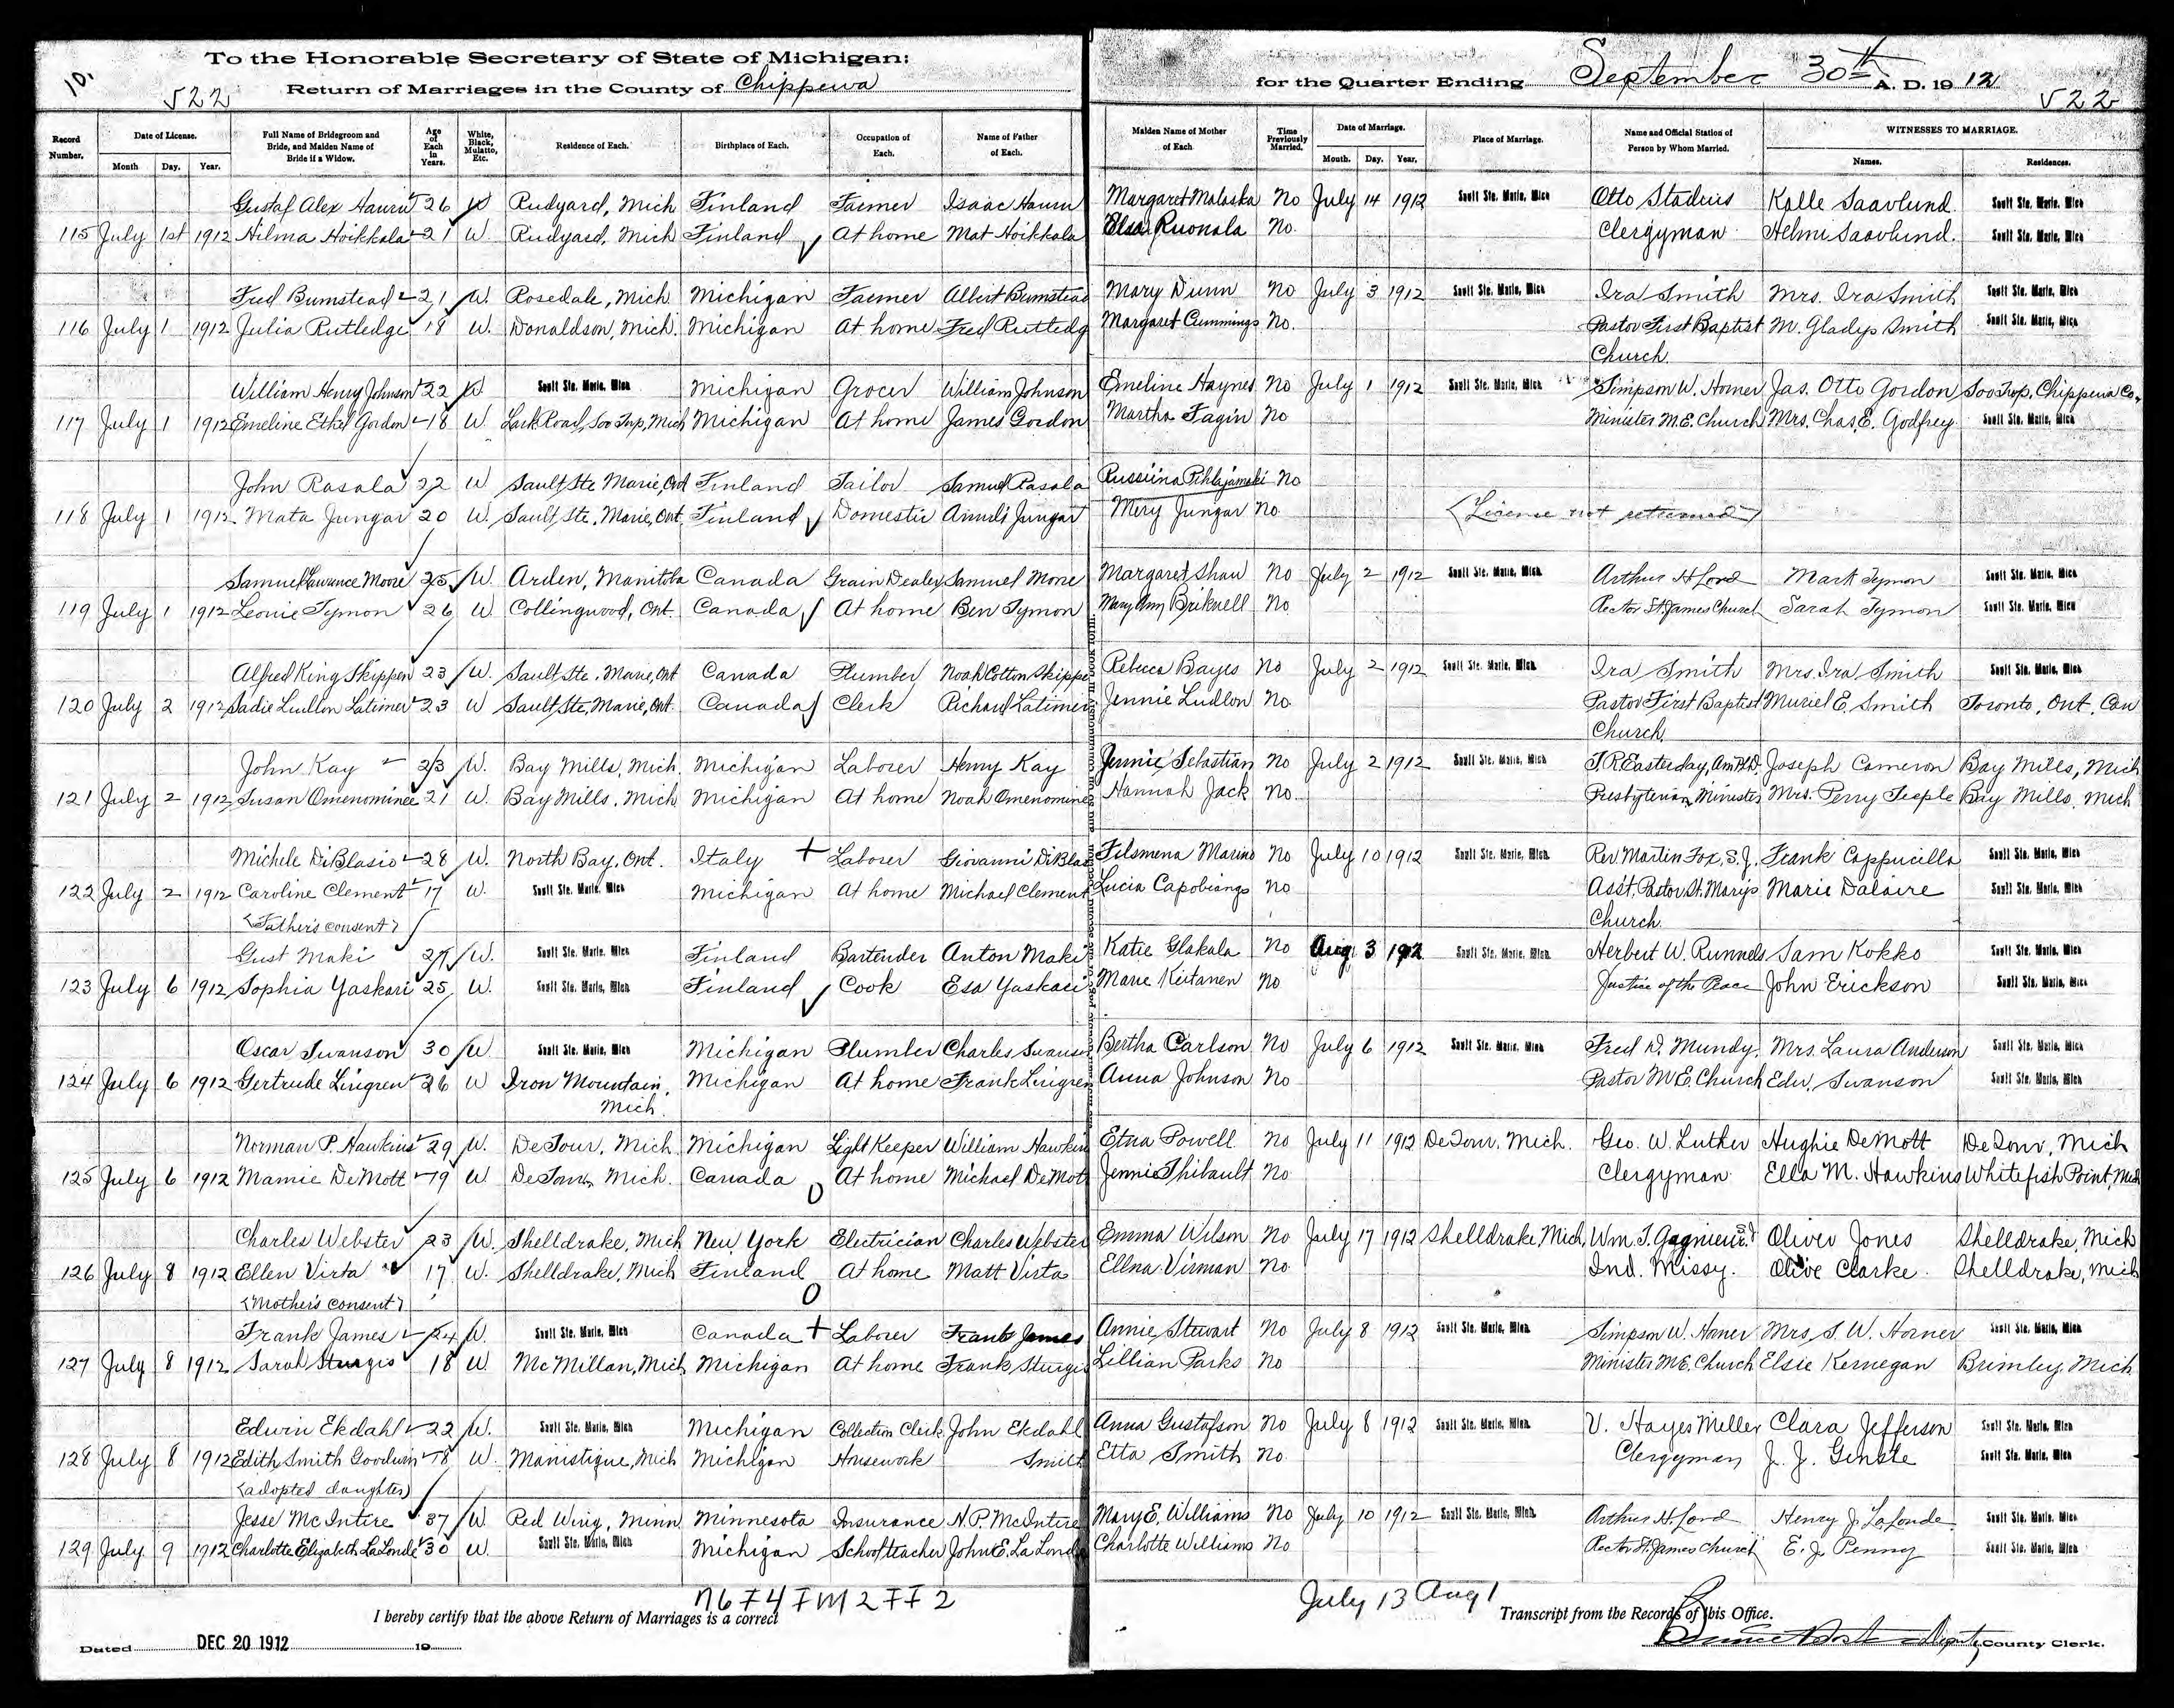 To the Honorable Secretary of State of Michigan:
10.
522
Return of Marriages in the County of Chippewa
for the Quarter Ending September 30th A. D. 1912
522
Record Number. Date of License. Month Day. Year. Full Name of Bridegroom and Bride, and Maiden Name of Bride if a Widow. Age of Each in Years. White, Black, Mulatto, Etc. Residence of Each. Birthplace of Each. Occupation of Each. Name of Father of Each. Maiden Name of Mother of Each Time Previously Married. Date of Marriage. Month. Day. Year. Place of Marriage. Name and Official Station of Person by Whom Married. WITNESSES TO MARRIAGE. Names. Residences.
Gustaf Alex Hauru 26 W Rudyard, Mich Finland Farmer Isaac Hauru Margaret Malaska No July 14 1912 Sault Ste. Marie, Mich Otto Stadius Kalle Saavlund. Sault Ste. Marie, Mich
115 July 1st 1912 Hilma Hoikkala 21 W. Rudyard, Mich Finland At home Mat Hoikkala Elsa Ruonala No. Clergyman Helmi Saavlund. Sault Ste. Marie, Mich
Fred Bumstead 21 W. Rosedale, Mich Michigan Farmer Albert Bumstead Mary Dunn No July 3 1912 Sault Ste. Marie, Mich Ira Smith Mrs. Ira Smith Sault Ste. Marie, Mich
116 July 1 1912 Julia Rutledge 18 W. Donaldson, Mich. Michigan At home Fred Rutledg Margaret Cummings No. Pastor First Baptist M. Gladys Smith Sault Ste. Marie, Mich
Church.
William Henry Johnson 22 W. Sault Ste. Marie, Mich Michigan Grocer William Johnson Emeline Haynes No July 1 1912 Sault Ste. Marie, Mich Simpson W. Horner Jas. Otto Gordon Soo Twp, Chippewa Co.
117 July 1 1912 Emeline Ethel Gordon 18 W Lark Road, Soo Twp, Mich Michigan At home James Gordon Martha Fagin No Minister M.E. Church Mrs. Chas. E. Godfrey Sault Ste. Marie, Mich
John Rasala 22 W Sault Ste Marie, Ont Finland Tailor Samuel Rasala Russiina Pihlajamaki No
118 July 1 1912 Mata Jungar 20 W. Sault Ste. Marie, Ont. Finland Domestic Jungar Mery Jungar No (License not returned)
Samuel Lawrence Moore 25 W. Arden, Manitoba Canada Grain Dealer Samuel More Margaret Shaw No July 2 1912 Sault Ste. Marie, Mich. Arthur H Lord Mark Tymon Sault Ste. Marie, Mich
119 July 1 1912 Leonie Tymon 26 W Collingwood, Ont. Canada At home Ben Tymon Mary Ann Briknell No Rector St. James Church Sarah Tymon Sault Ste. Marie, Mich
Alfred King Skippen 23 W. Sault Ste. Marie, Ont Canada Plumber Noah Cotton Skippe Rebecca Bayes No July 2 1912 Sault Ste. Marie, Mich. Ira Smith Mrs. Ira Smith Sault Ste. Marie, Mich
120 July 2 1912 Sadie Ludlon Latimer 23 W Sault Ste. Marie, Ont. Canada Clerk Richard Latimer Jennie Ludlon No. Pastor First Baptist Muriel E. Smith Toronto, Ont, Can
Church.
John Kay 23 W. Bay Mills, Mich. Michigan Laborer Henry Kay Jennie Sebastian No July 2 1912 Sault Ste. Marie, Mich T.R. Easterday, Joseph Cameron Bay Mills, Mich
121 July 2 1912 Susan Omenominee 21 W. Bay Mills, Mich Michigan At home Noah Omenomine Hannah Jack No. Presbyterian Minister Mrs. Perry Teeple Bay Mills, Mich
Michele DiBlasio 28 W. North Bay, Ont. Italy + Laborer Giovanni DiBlas Filomena Marino No July 10 1912 Sault Ste. Marie, Mich. Rev. Martin Fox, S.J. Frank Cappucilla Sault Ste. Marie, Mich
122 July 2 1912 Caroline Clement 17 W. Sault Ste. Marie, Mich Michigan At home Michael Clement Lucia Capobiango No Asst. Pastor St. Mary's Marie Dalaire Sault Ste. Marie, Mich
(Father's consent) Church.
Gust Maki 27 W. Sault Ste. Marie, Mich Finland Bartender Anton Maki Katie Glakala No Aug 3 1912 Sault Ste. Marie, Mich. Herbert W. Runnels Sam Kokko Sault Ste. Marie, Mich
123 July 6 1912 Sophia Yaskari 25 W. Sault Ste. Marie, Mich Finland Cook Esa Yaskari Marie Keitanen No Justice of the Peace John Erickson Sault Ste. Marie, Mich
Oscar Swanson 30 W Sault Ste. Marie, Mich Michigan Plumber Charles Swanso Bertha Carlson No July 6 1912 Sault Ste. Marie, Mich Fred D. Mundy. Mrs. Laura Anderson Sault Ste. Marie, Mich
124 July 6 1912 Gertrude Lingren 26 W Iron Mountain, Michigan At home Frank Lingren Anna Johnson No Pastor M.E. Church Edw. Swanson Sault Ste. Marie, Mich
Mich.
Norman P. Hawkins 29 W. DeTour, Mich Michigan Light Keeper William Hawkin Etna Powell No July 11 1912 DeTour, Mich. Geo. W. Luther Hughie DeMott DeTour, Mich
125 July 6 1912 Mamie DeMott 19 W DeTour, Mich. Canada At home Michael DeMott Jennie Thibault No Clergyman Ella M. Hawkins Whitefish Point, Mich
Charles Webster 23 W. Shelldrake, Mich New York Electrician Charles Webster Emma Wilson No July 17 1912 Shelldrake, Mich. Wm. F. Gagnieur S.J. Oliver Jones Shelldrake, Mich
126 July 8 1912 Ellen Virta 17 W. Shelldrake, Mich Finland At home Matt Virta Ellna Virman No. Ind. Missy. Olive Clarke. Shelldrake, Mich
(Mother's consent)
Frank James 24 W. Sault Ste. Marie, Mich Canada + Laborer Frank James Annie Stewart No July 8 1912 Sault Ste. Marie, Mich. Simpson W. Horner Mrs. S. W. Horner Sault Ste. Marie, Mich
127 July 8 1912 Sarah Sturgis 18 W. McMillan, Mich. Michigan At home Frank Sturgis Lillian Parks No Minister M.E. Church Elsie Kernegan Brimley, Mich
Edwin Ekdahl 22 W. Sault Ste. Marie, Mich Michigan Collection Clerk John Ekdahl Anna Gustafson No July 8 1912 Sault Ste. Marie, Mich. V. Hayes Miller Clara Jefferson Sault Ste. Marie, Mich
128 July 8 1912 Edith Smith Goodwin 18 W. Manistique, Mich Michigan Housework Smith Etta Smith No. Clergyman J. J. Sault Ste. Marie, Mich
(adopted daughter)
Jesse McIntire 37 W Red Wing, Minn Minnesota Insurance H.P. McIntire Mary E. Williams No July 10 1912 Sault Ste. Marie, Mich. Arthur H. Lord Henry J. LaLonde Sault Ste. Marie, Mich
129 July 9 1912 Charlotte Elizabeth LaLonde 30 W. Sault Ste. Marie, Mich Michigan School teacher John E. La Londe Charlotte Williams No Rector St. James Church E. J. Penny Sault Ste. Marie, Mich
July 13 Aug 1
I hereby certify that the above Return of Marriages is a correct Transcript from the Records of this Office.
Dated DEC 20 1912 19 Deputy County Clerk.